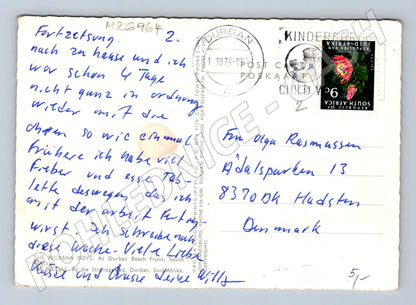 M2G964
Fortzetsung. 2.
nach zu hause und ich
war schon 4 Tage
nicht ganz in ordnung
wieder mit die
ohren so wie einmal
frühere ich habe viel
Fieber und esse Tab-
lette deswegen das ich
mit den arbeit fertig
wirst. Ich schreibe nach
diese Woche. Viele Liebe
Grüsse und Küsse deine Willy
DURBAN
KINDERSORG
POST CA
POSKAA
CHILD
REPUBLIC OF
SOUTH AFRICA
SUID-AFRIKA
9c
2
Frau Olga Rasmussen
Ådalsparken 13
8370 DK Hadsten
Denmark
THE RICKSHA BOYS: At Durban Beach Front, South
5,-
POHLSERVICE